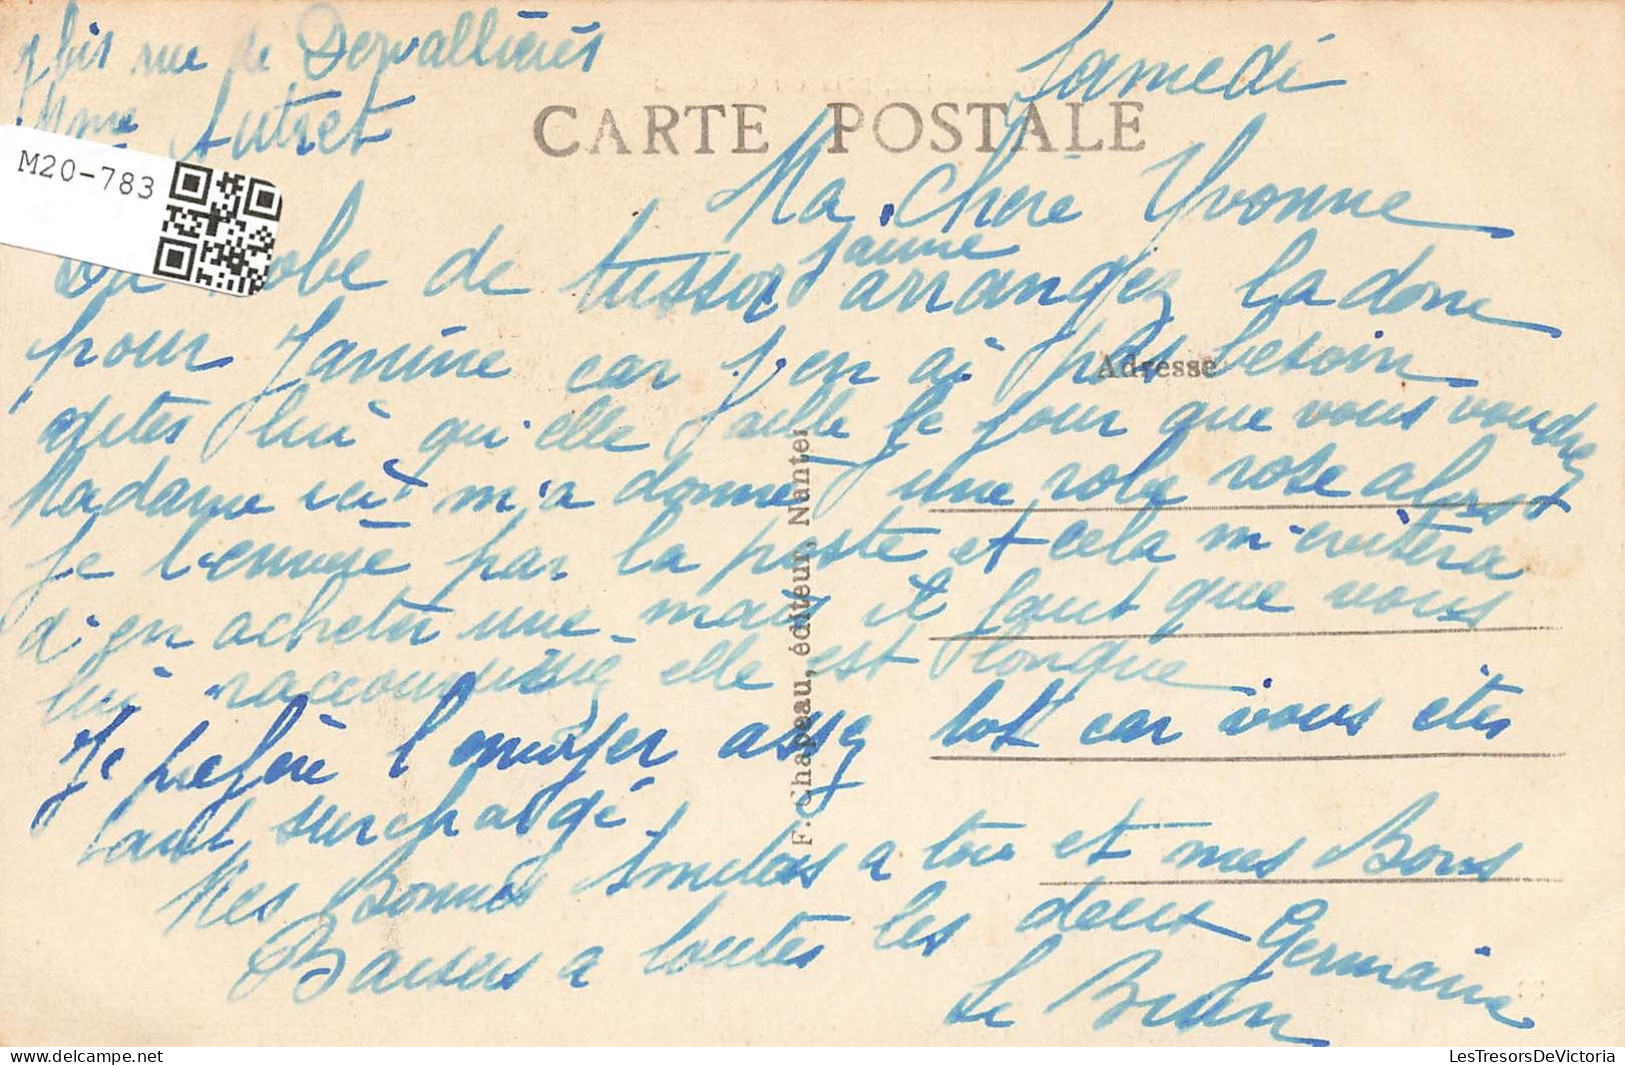 bis rue de Dervallières
Mme Autret
Samedi
CARTE POSTALE
M20-783
Ma Chere Yvonne
jaune
robe de tussor arrangez la donc
pour Janine car j'en ai pas besoin
Adresse
dites lui qu'elle aille le jour que vous voudrez
Madame m'a donne une robe rose alors
je l'envoie par la poste et cela m'evitera
d'en acheter une mais il faut que vous
lui raccourcissiez elle est longue
Je prefère l'envoyer assez tot car vous etes
tant surchargé.
Mes Bonnes Amities a tous et mes Bons
Baisers a toutes les deux Germaine
Le Brun
F. Chapeau, éditeur, Nantes
LesTresorsDeVictoria